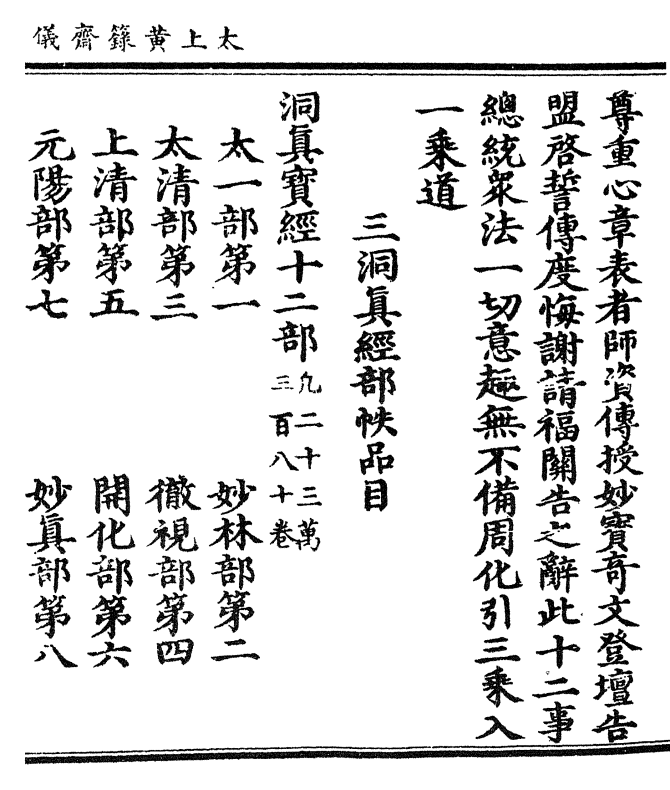 太上黄籙齋儀
尊重心章表者師資傳授妙寳奇文登壇告
盟啓誓傳度悔謝請福關告之辭此十二事
總統衆法一切意趣無不備周化引三乘入
一乘道
三洞眞經部帙品目
洞眞寳經十二部凢二十三萬三百八十卷
太一部第一 妙林部第二
太清部第三 徹視部第四
上清部第五 開化部第六
元陽部第七 妙眞部第八